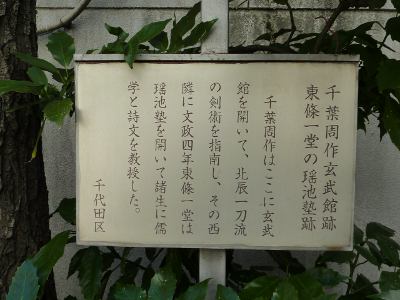 千葉周作玄武館跡
東條一堂の瑶池塾跡
千葉周作はここに玄武
館を開いて、北辰一刀流
の剣術を指南し、その西
隣に文政四年東條一堂は
瑶池塾を開いて諸生に儒
学と詩文を教授した。
千代田区